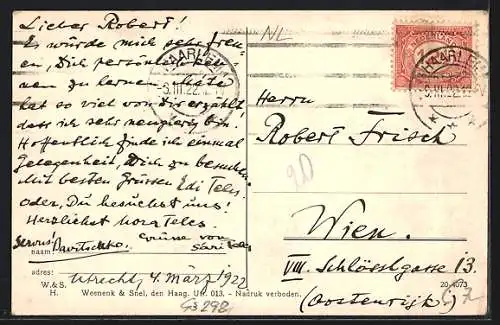 Lieber Robert!
Es würde mich sehr freu-
en, Dich persönlich ken-
nen zu lernen.
hat so viel von Dir erzählt,
dass ich sehr neugierig bin.
Hoffentlich finde ich einmal
Gelegenheit, Dich zu besuchen.
Mit besten Grüssen Edi Teles.
oder, Du besuchst uns!
Herzlichst Nora Teles.
Servus!
Grüsse von
naam:
adres: Utrecht, 4. März 1922
W. & S.
H.
Weenenk & Snel, den Haag. Uit. 013. - Nadruk verboden.
20 4073
NL
HAARLEM
3.III.22
HAARLEM
3.III.22
Herrn
Robert Frisch
Wien.
VIII. Schlösslgasse 13.
(Oostenrijk)